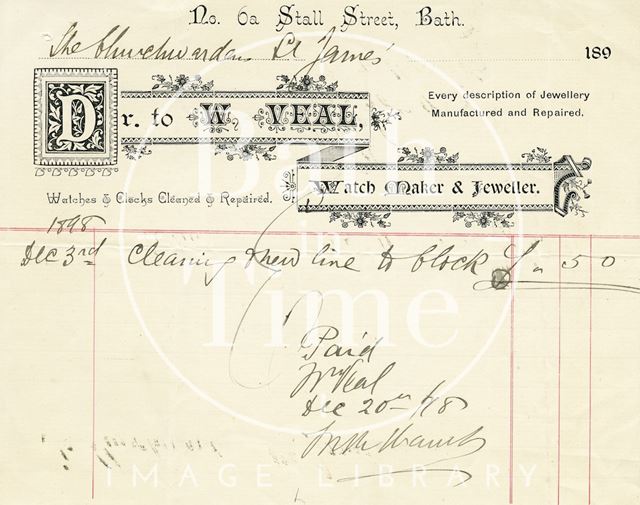 No. 6a Stall Street, Bath.
The Churchwardens St James
189
Dr. to W VEAL,
Every description of Jewellery
Manufactured and Repaired.
Watch Maker & Jeweller.
Watches & Clocks Cleaned & Repaired.
1898
Dec 3rd Cleaning & new line to Clock £ " 5 0
Paid
Wm Veal
Dec 20th /98
Bath
in
Time
IMAGE LIBRARY